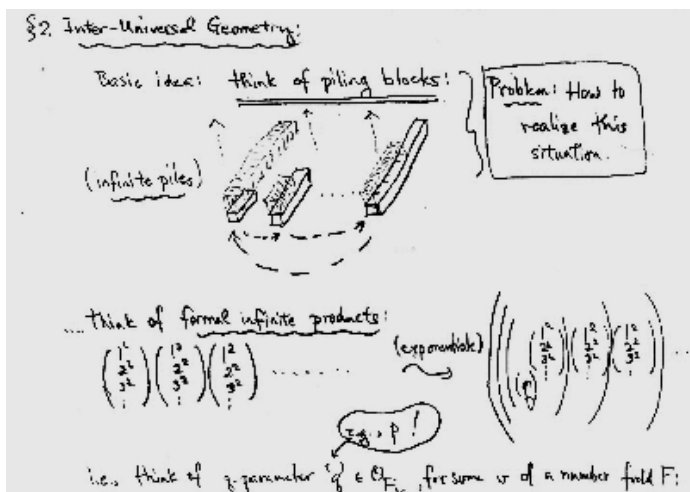 §2. Inter-Universal Geometry:
Basic idea: think of piling blocks:
Problem: How to
realize this
situation.
(infinite piles)
.... think of formal infinite products:
(1² 2² 3² ⋮) (1² 2² 3² ⋮) (1² 2² 3² ⋮) ........
(exponentiate)
(1² 2² 3² ⋮) (1² 2² 3² ⋮) (1² 2² 3² ⋮) ...
e.g. → p!
i.e., think of q-parameter "q" ∈ for some v of a number field F: